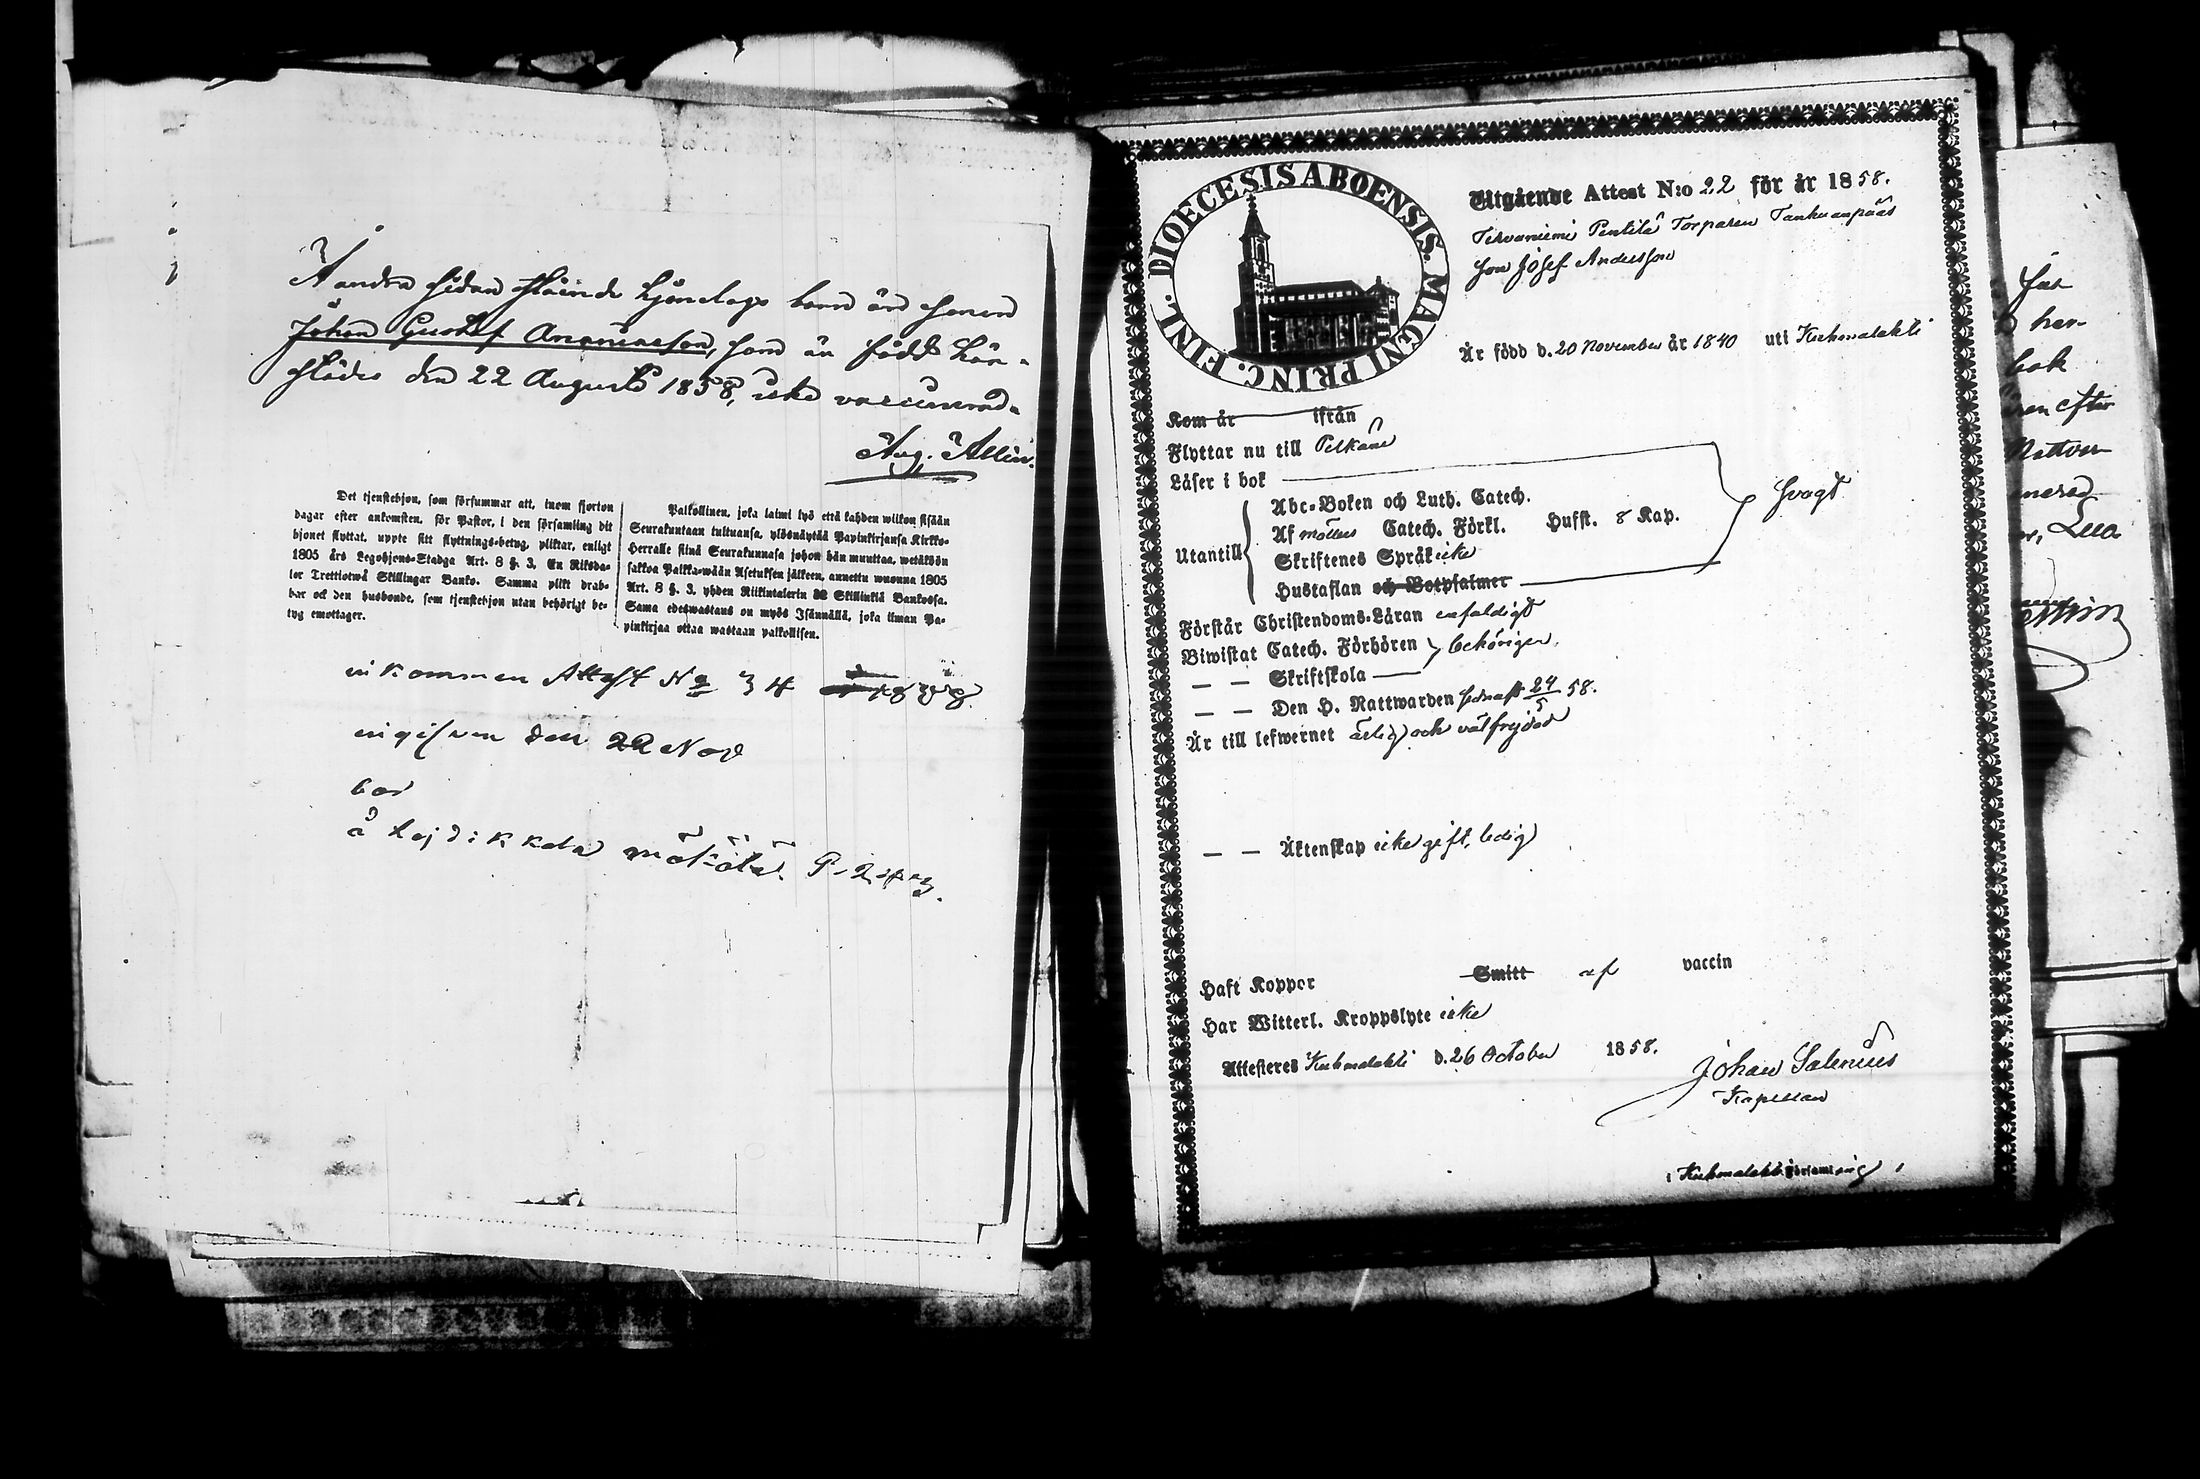 Å andra sidan stående hjonelags barn är sonen
Johan Gustaf Ananiasson, som är född här-
städes den 22 Augusti 1858, icke vaccinerad.
Aug. Allén.
Det tjenstehjon, som försummar att, inom fjorton
dagar efter ankomsten, för Pastor, i den församling dit
hjonet flyttat, uppte sitt flyttnings-betyg, pliktar, enligt
1805 års Legohjons-Stadga Art. 8 §. 3, En Riksda-
ler Trettiotwå Skillingar Banko. Samma plikt drab-
bar ock den husbonde, som tjenstehjon utan behörigt be-
tyg emottager.
Palkollinen, joka laimi lyö että kahden wiikon sisään
Seurakuntaan tultuansa, ylösnäytää Papinkirjansa Kirkko-
Herralle siinä Seurakunnasa johon hän muuttaa, wetäköön
sakkoa Palkka-wään Asetuksen jälkeen, annettu wuonna 1805
Art. 8 §. 3, yhden Riikintalerin 32 Skillinkiä Bankossa.
Sama edeswastaus on myös Isännällä, joka ilman Pa-
pinkirjaa ottaa wastaan palkollisen.
inkommen Attest No 34 1858
ingifven den 22 Nov
bor
å
DIOECESIS ABOENSIS. MAGNI PRINC. FINL.
Utgående Attest N:o 22 för år 1858.
Pentilä Torparen Tanhuanpääs
son Josef Andersson
Är född d. 20 November år 1840 uti Kuhmalahti
Kom år ifrån
Flyttar nu till Pelkäne
Läser i bok
Utantill
Abc-Boken och Luth. Catech.
Af möllers Catech. Förkl. Husst. 8 Kap.
Skriftenes Språk icke
Hustaflan och Botpsalmer
svagt
Förstår Christendoms-Läran enfaldigt
Biwistat Catech. Förhören
behörigen
— — Skriftskola
— — Den H. Nattwarden sednast 24/5 58.
Är till lefwernet ärlig och välfrejdad
— — Äktenskap icke gift, ledig
Haft Koppor Smitt af vaccin
Har Witterl. Kroppslyte icke
Attesteres Kuhmalahti d. 26 October 1858.
Johan Salenius
Kapellan
i Kuhmalahti Församling
bok
efter
Nattvar-